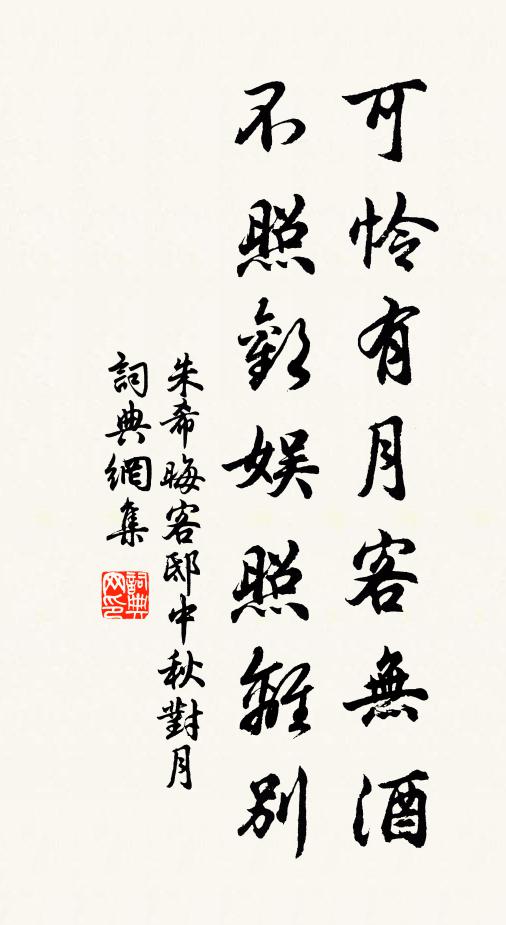 可怜有月客無酒
不照歡娱照離別
朱希晦客邸中秋對月
詞典網集
詞典网印